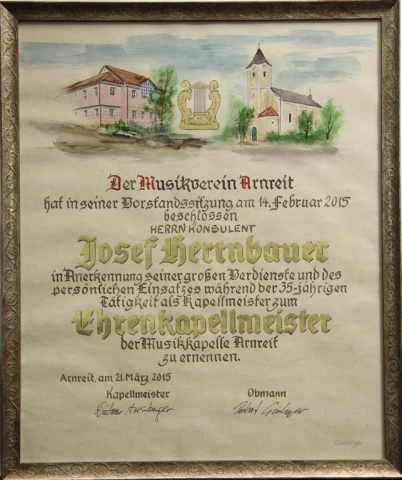 Der Musikverein Arnreit
hat in seiner Vorstandssitzung am 14. Februar 2015
beschlossen
HERRN KONSULENT
Josef Herrnbauer
in Anerkennung seiner großen Verdienste und des
persönlichen Einsatzes während der 35-jährigen
Tätigkeit als Kapellmeister zum
Ehrenkapellmeister
der Musikkapelle Arnreit
zu ernennen.
Arnreit, am 21. März 2015
Kapellmeister Obmann